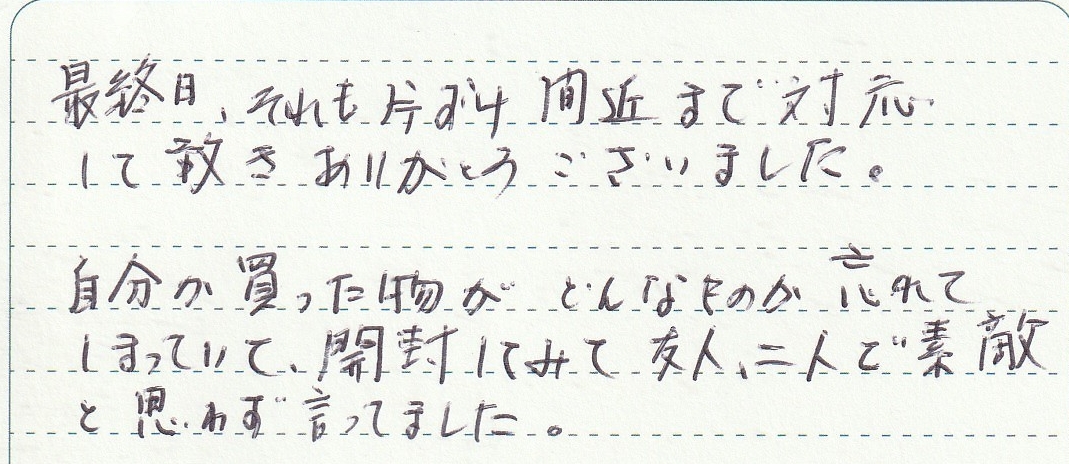 最終日、それも片づけ間近まで対応
して敢きありがとうございました。
自分が買った物がどんなものか忘れて
しまっていて、開封してみて友人、二人で素敵
と思わず言ってました。